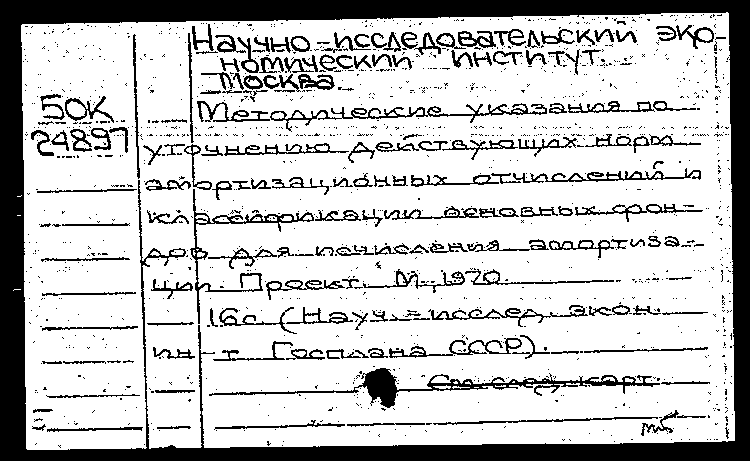 Научно-исследовательский эко-
номический институт.
Москва
50К
Методические указания по
24897
уточнению действующих норм
амортизационных отчислений и
классификации основных фон-
дов для исчисления амортиза-
ции. Проект. М., 1970.
16с. (Науч.-исслед. экон.
ин-т Госплана СССР).
См. след. карт.